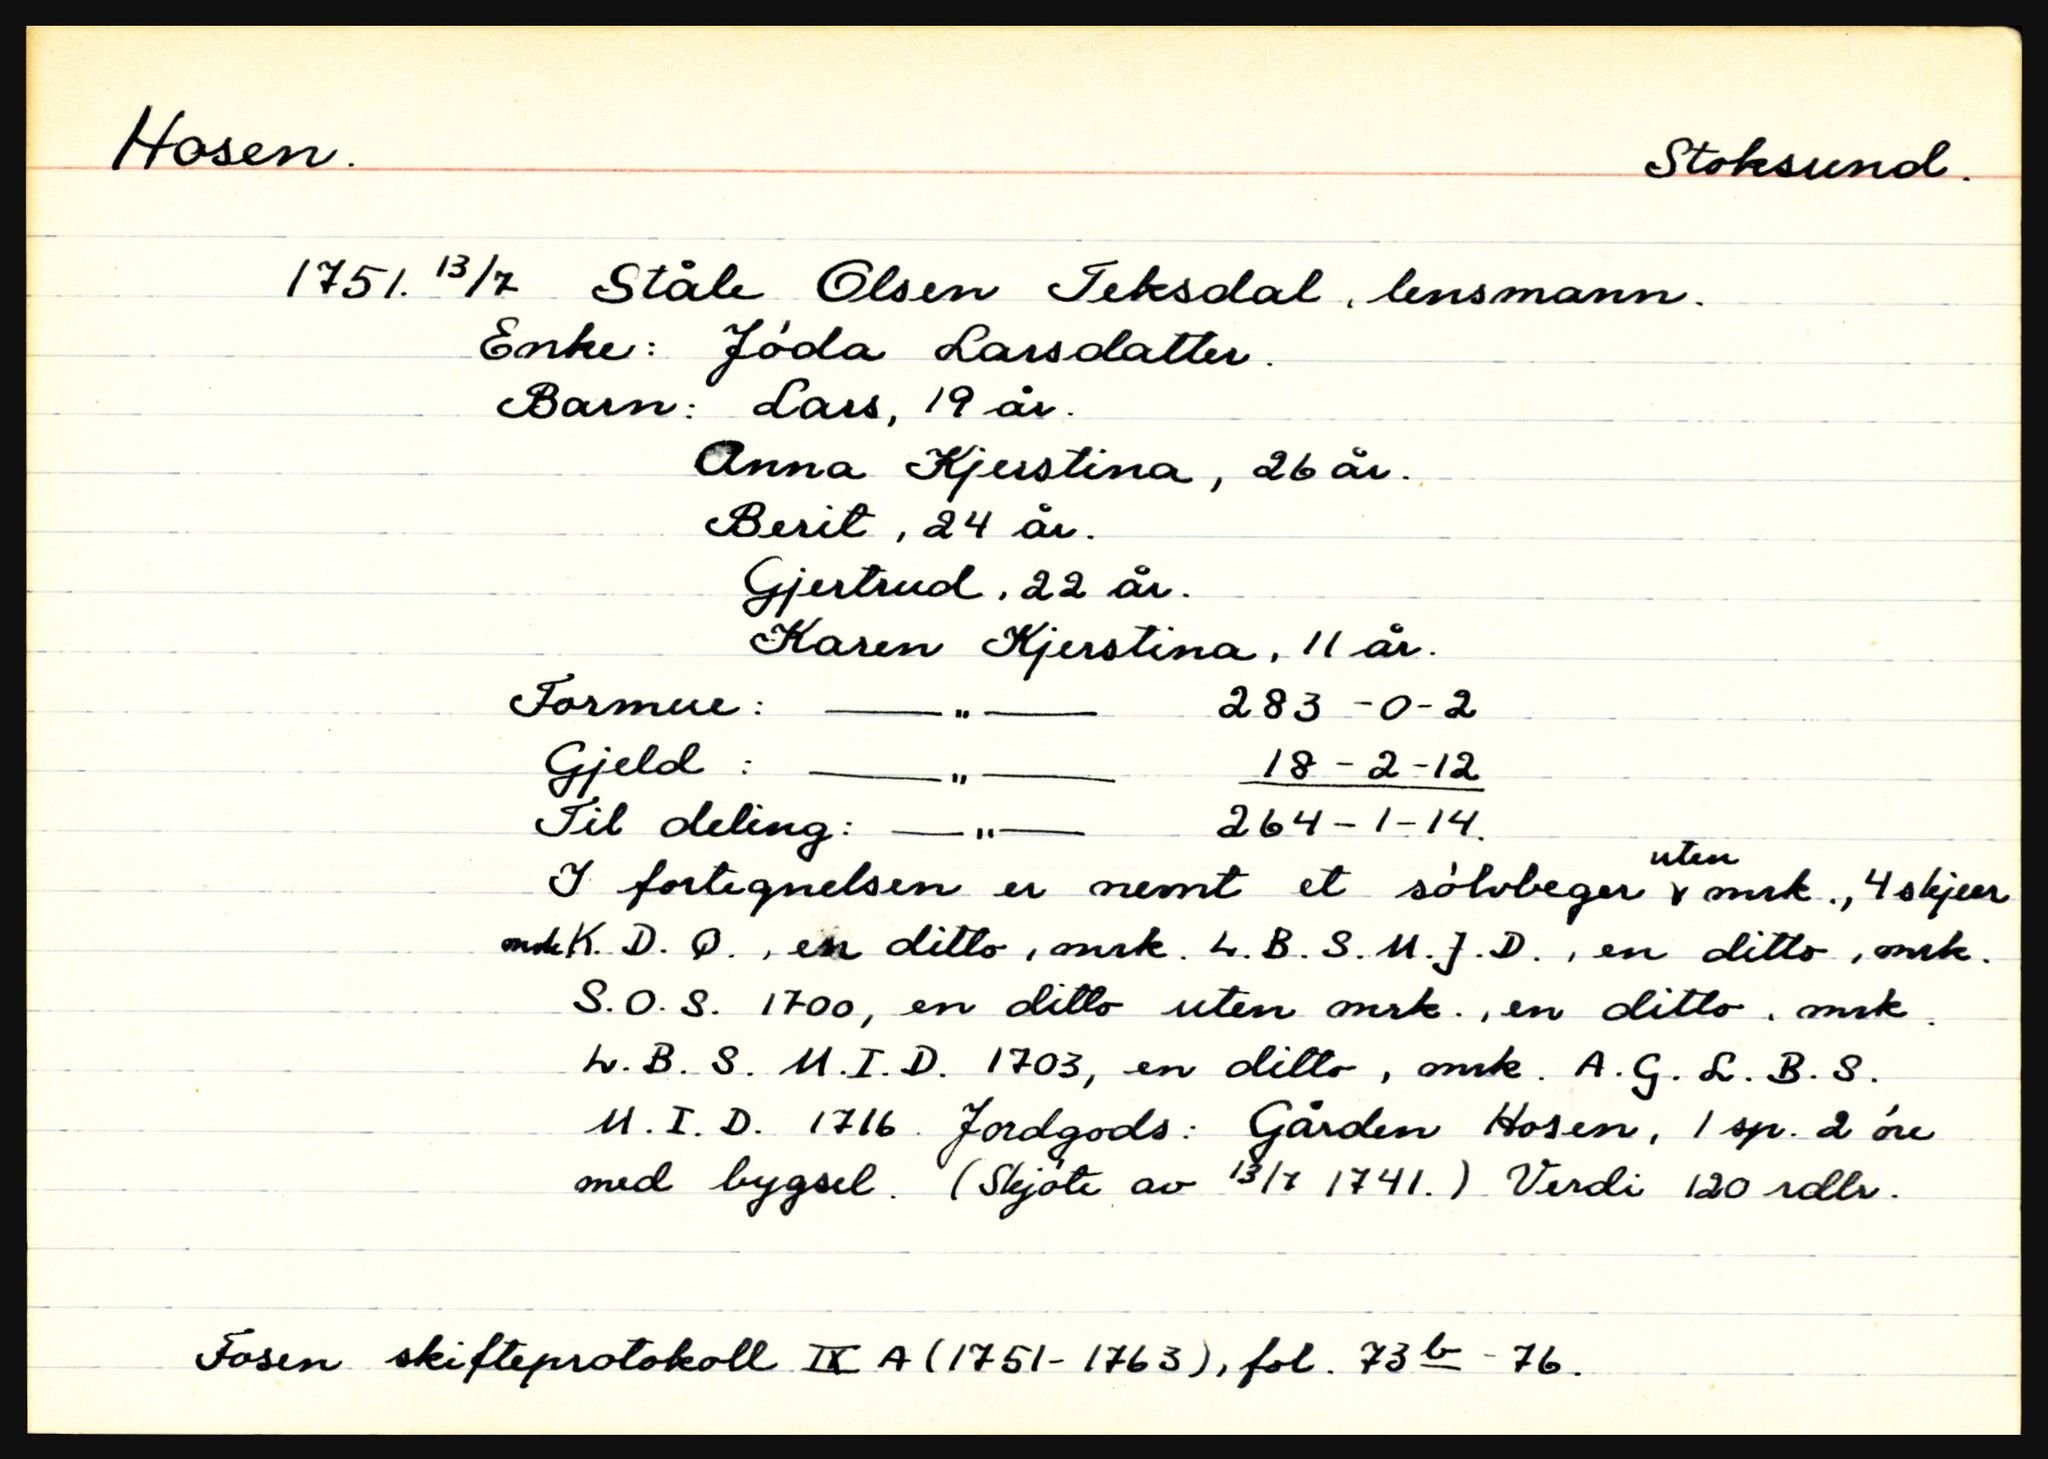 Hosen.
Stoksund.
1751. 13/7 Ståle Olsen Teksdal, lensmann.
Enke: Jóda Larsdatter.
Barn: Lars, 19 år.
Anna Kjerstina, 26 år.
Berit, 24 år.
Gjertrud, 22 år.
Karen Kjerstina, 11 år.
Formue: —„— 283 - 0 - 2
Gjeld : —„— 18 - 2 - 12
Til deling: —„— 264 - 1 - 14.
I fortegnelsen er nemt et sólvbeger uten mrk., 4 skjeer
mrk K. D. O., en ditto, mrk. L. B. S. M. J. D., en ditto, mrk.
S. O. S. 1700, en ditto uten mrk., en ditto, mrk.
L. B. S. M. I. D. 1703, en ditto, mrk. A. G. L. B. S.
M. I. D. 1716. Jordgods: Gården Hosen, 1 sp. 2 óre
med bygsel. (Skjóte av 13/7 1741.) Verdi 120 rdlr.
Fosen skifteprotokoll IX A (1751-1763), fol. 73 b - 76.